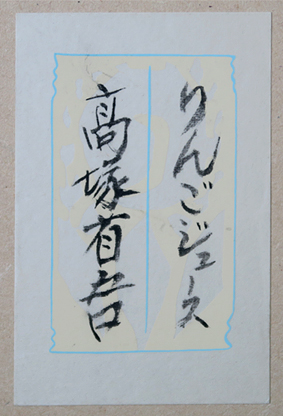 りんごジュース
高塚有吾